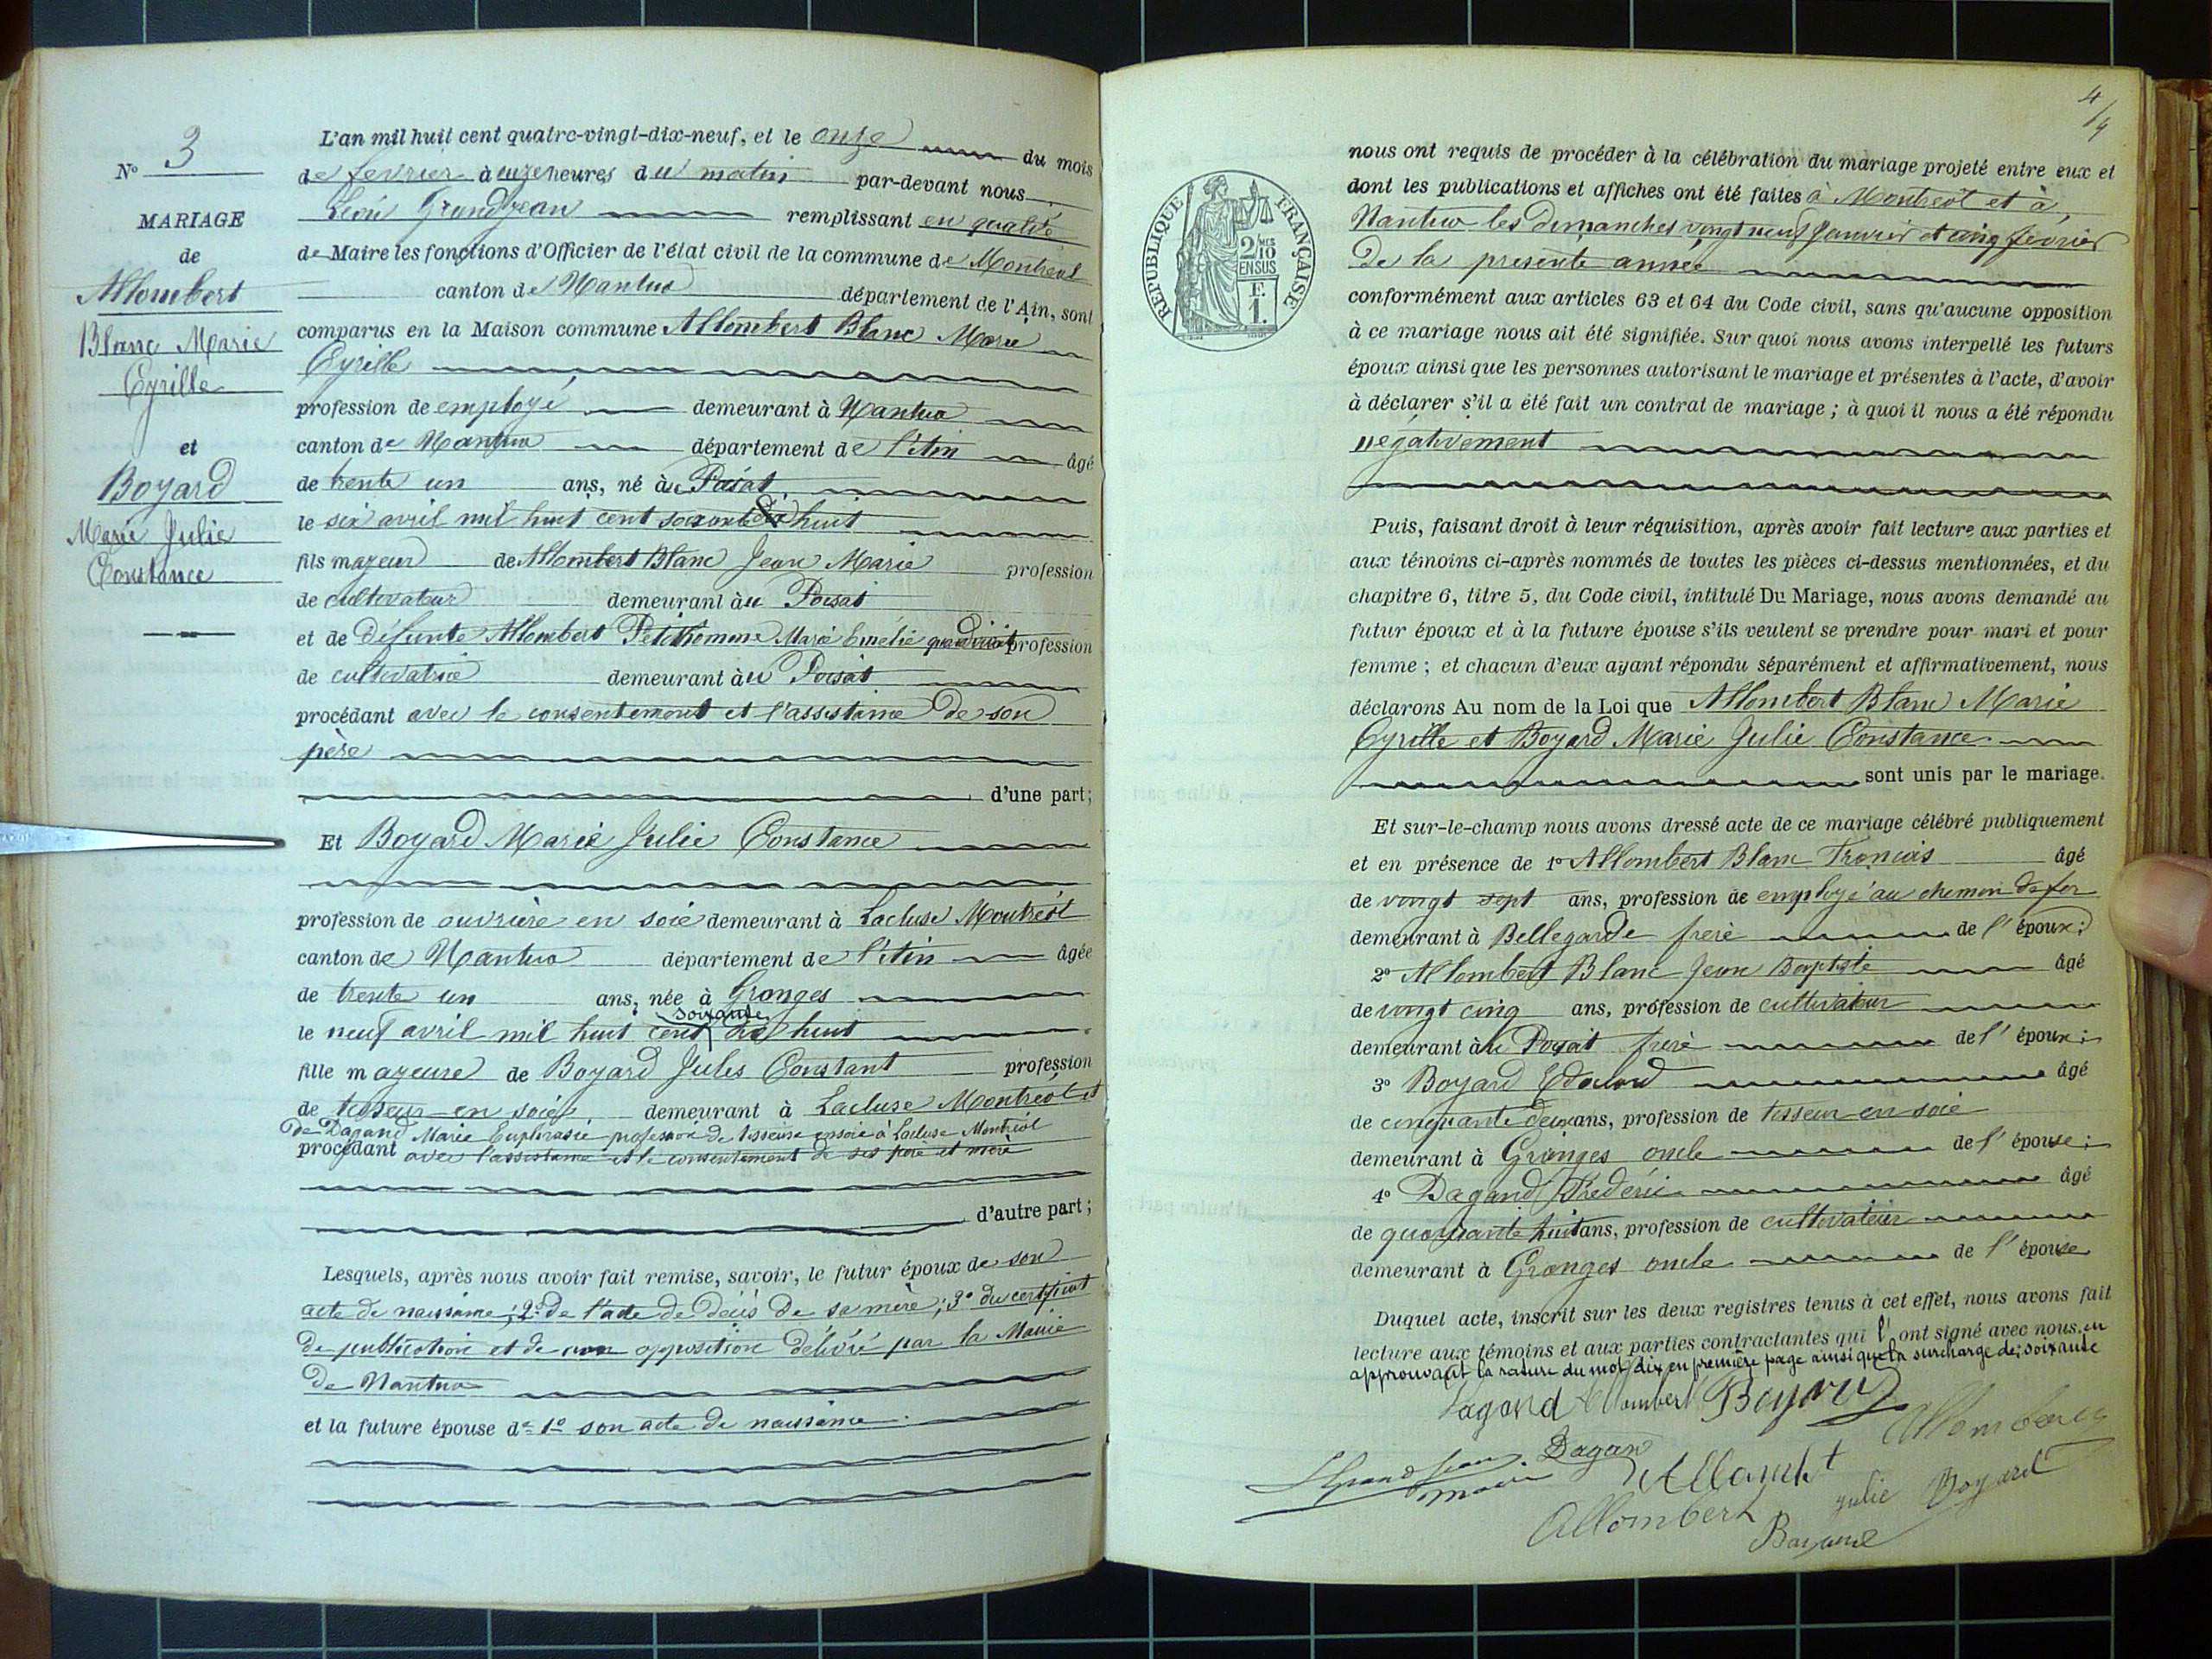 N° 3
MARIAGE
de
Allombert
Blanc Marie
Cyrille
et
Boyard
Marie Julie
Constance
L'an mil huit cent quatre-vingt-dix-neuf, et le onze du mois
de fevrier à onze heures du matin par-devant nous
Léon Grandjean remplissant en qualité
de Maire les fonctions d'Officier de l'état civil de la commune de Montreal
canton de Nantua département de l'Ain, sont
comparus en la Maison commune Allombert Blanc Marie
Cyrille
profession de employé demeurant à Nantua
canton de Nantua département de l'Ain âgé
de trente un ans, né au Poisat
le six avril mil huit cent soixante dix huit
fils majeur de Allombert Blanc Jean Marie profession
de cultivateur demeurant au Poisat
et de défunte Allombert Petithomme Marie Emélie profession
de cultivatrice demeurant au Poisat
procédant avec le consentement et l'assistance de son
père
d'une part;
Et Boyard Marie Julie Constance
profession de ouvrière en soie demeurant à Lacluse Montréal
canton de Nantua département de l'Ain âgée
de trente un ans, née à Granges
soixante
le neuf avril mil huit cent dix huit
fille majeure de Boyard Jules Constant profession
de tisseur en soie demeurant à Lacluse Montréal et
de Dagand Marie Euphrasie profession de tisseuse en soie à Lacluse Montréal
procédant avec l'assistance et le consentement de ses père et mère
d'autre part;
Lesquels, après nous avoir fait remise, savoir, le futur époux de son
acte de naissance; 2° de l'acte de décès de sa mère; 3° du certificat
de publication et de non opposition délivré par la Mairie
de Nantua
et la future épouse de 1° son acte de naissance.
4/4
RÉPUBLIQUE FRANÇAISE
2/10
EN SUS
F.
1.
nous ont requis de procéder à la célébration du mariage projeté entre eux et
dont les publications et affiches ont été faites à Montreal et à
Nantua les dimanches vingt neuf Janvier et cinq fevrier
de la presente année
conformément aux articles 63 et 64 du Code civil, sans qu'aucune opposition
à ce mariage nous ait été signifiée. Sur quoi nous avons interpellé les futurs
époux ainsi que les personnes autorisant le mariage et présentes à l'acte, d'avoir
à déclarer s'il a été fait un contrat de mariage; à quoi il nous a été répondu
négativement
Puis, faisant droit à leur réquisition, après avoir fait lecture aux parties et
aux témoins ci-après nommés de toutes les pièces ci-dessus mentionnées, et du
chapitre 6, titre 5, du Code civil, intitulé Du Mariage, nous avons demandé au
futur époux et à la future épouse s'ils veulent se prendre pour mari et pour
femme; et chacun d'eux ayant répondu séparément et affirmativement, nous
déclarons Au nom de la Loi que Allombert Blanc Marie
Cyrille et Boyard Marie Julie Constance
sont unis par le mariage.
Et sur-le-champ nous avons dressé acte de ce mariage célébré publiquement
et en présence de 1° Allombert Blanc François âgé
de vingt sept ans, profession de employé au chemin de fer
demeurant à Bellegarde frere de l'époux;
2° Allombert Blanc Jean Baptiste âgé
de vingt cinq ans, profession de cultivateur
demeurant au Poisat frere de l'époux;
3° Boyard Edouard âgé
de cinquante deux ans, profession de tisseur en soie
demeurant à Granges oncle de l'épouse;
4° Dagand Frédéric âgé
de quarante huit ans, profession de cultivateur
demeurant à Granges oncle de l'épouse
Duquel acte, inscrit sur les deux registres tenus à cet effet, nous avons fait
lecture aux témoins et aux parties contractantes qui l'ont signé avec nous en
approuvant la rature du mot dix en première page ainsi que la surcharge de; soixante
Dagand Allombert Boyard
Allombert
LGrandjean Dagand Allombert
maire
Allombert Julie Boyard
Boyard